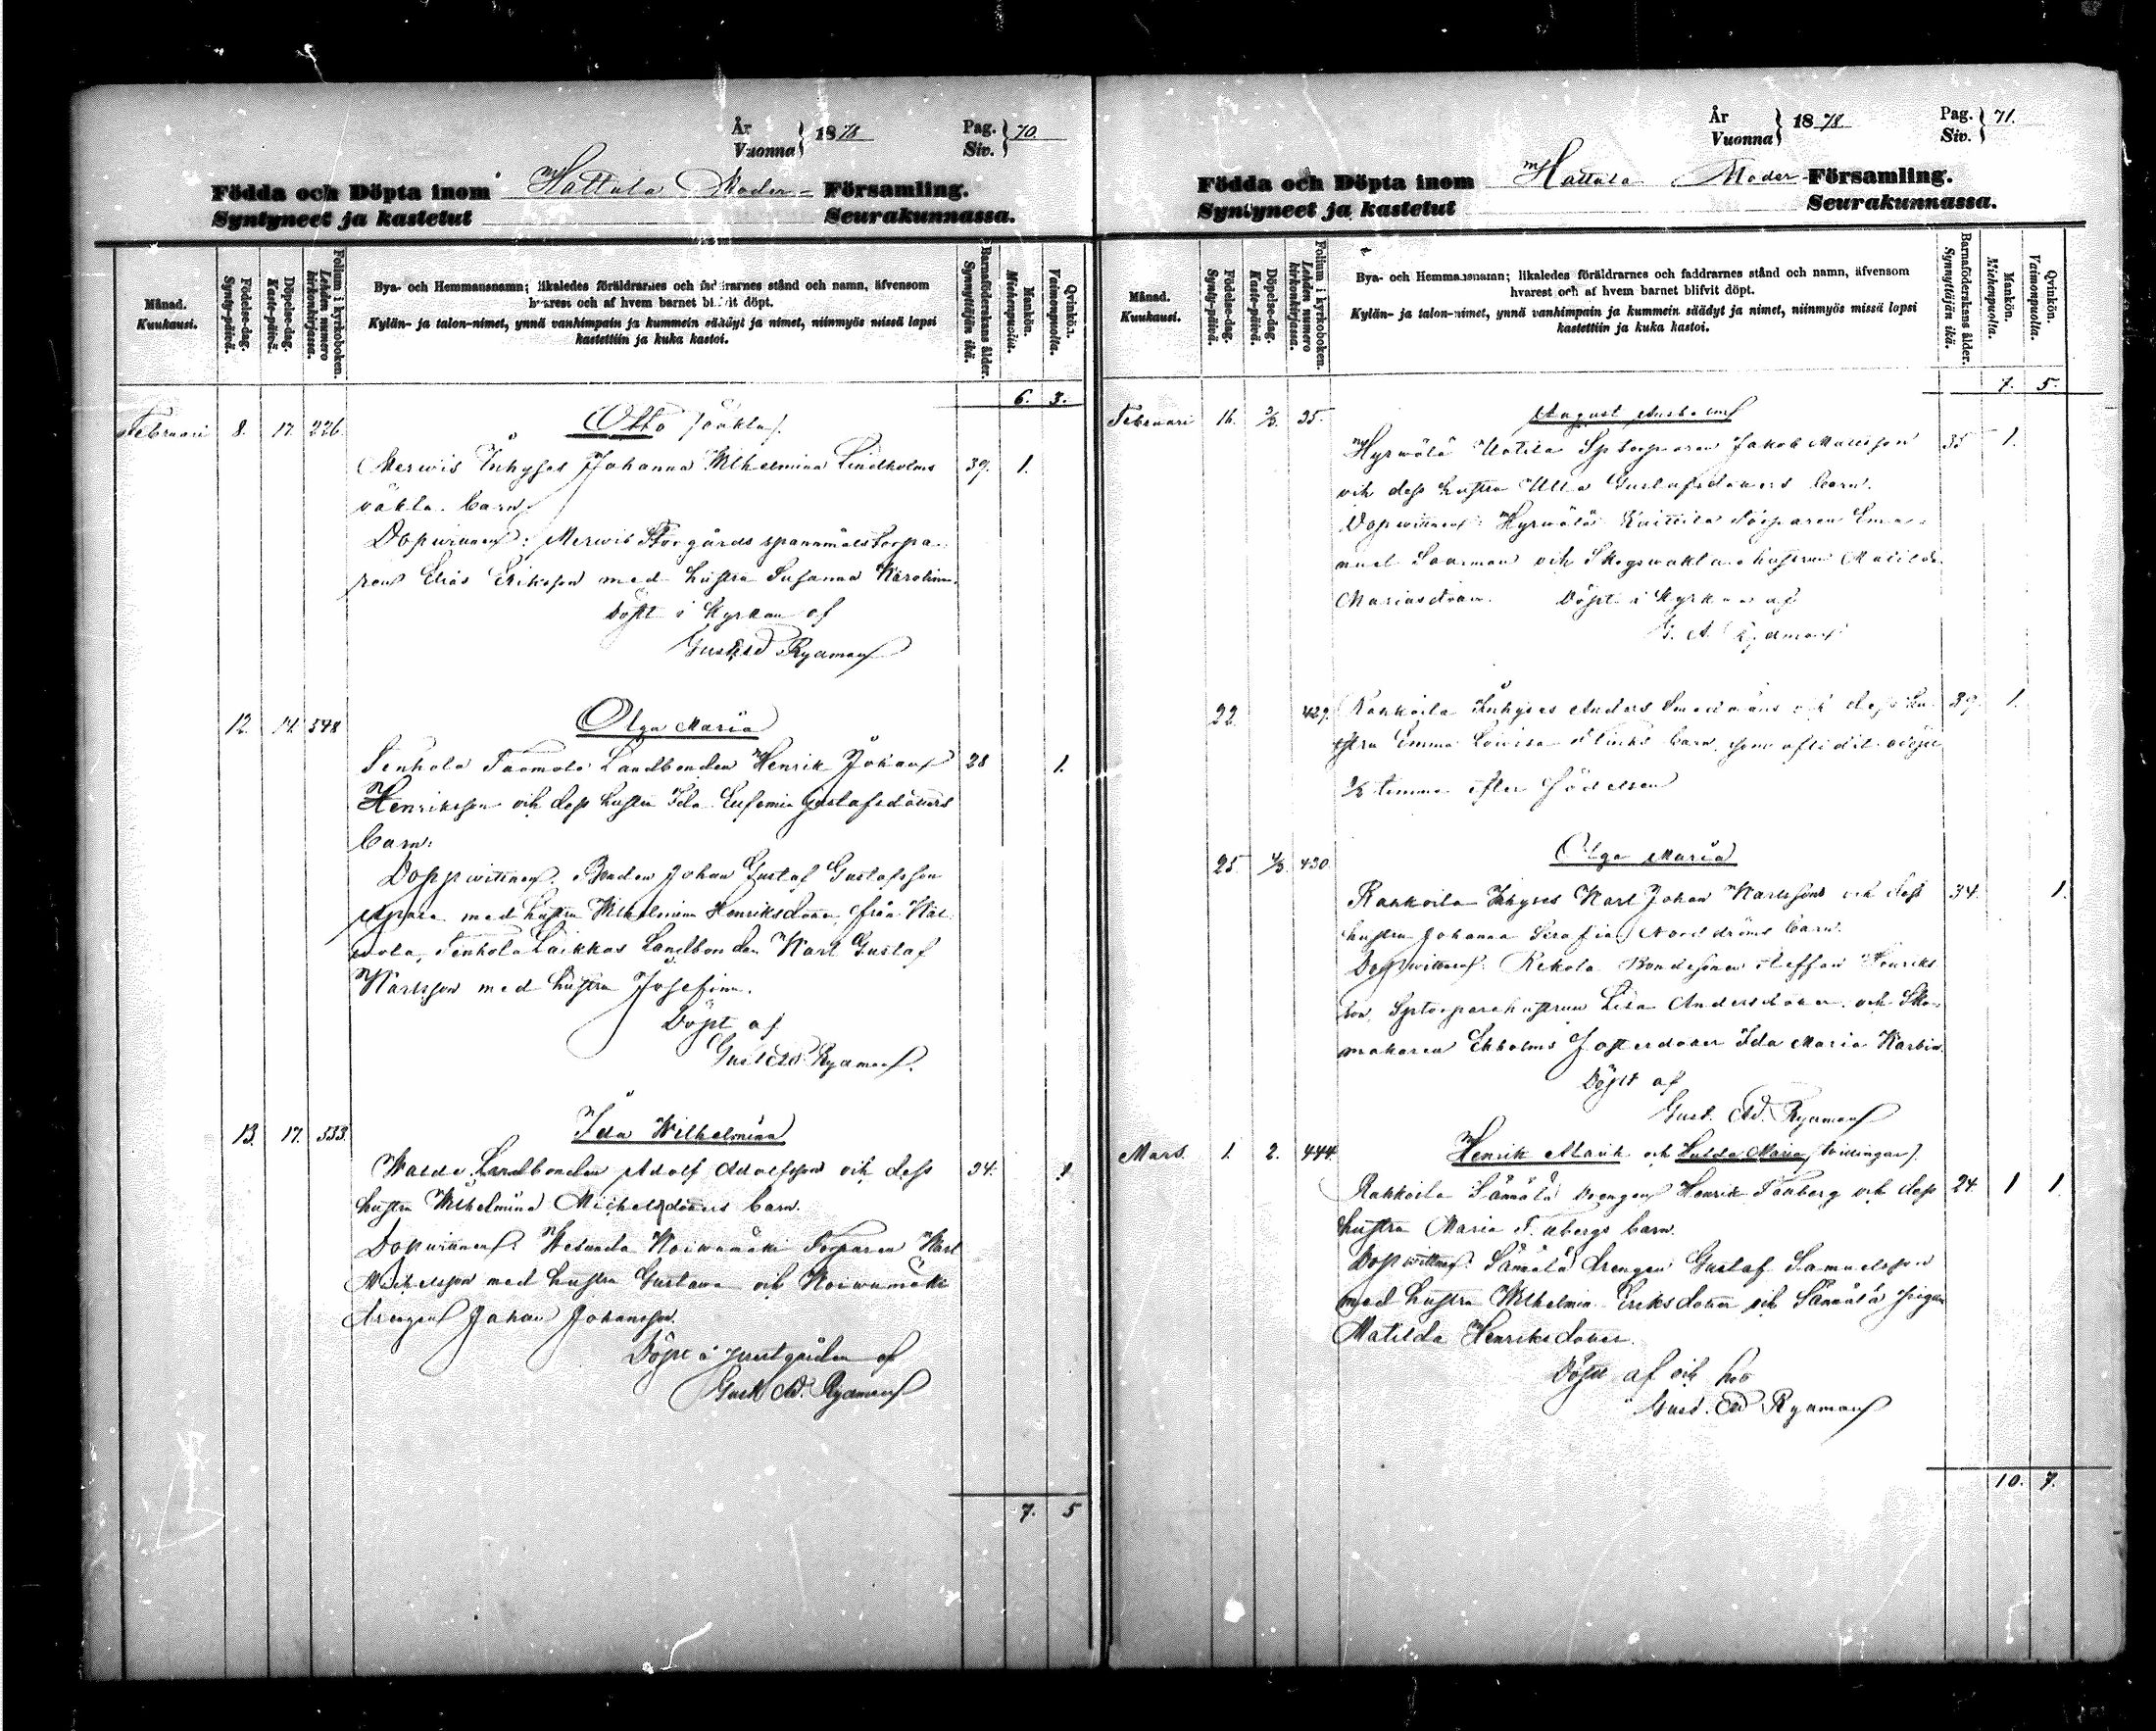 År
Vuonna } 1878
Pag.
Siv. } 70.
Födda och Döpta inom Hattula Moder- Församling.
Syntyneet ja kastetut Seurakunnassa.
Månad.
Kuukausi.
Födelse-dag.
Synty-päivä.
Döpelse-dag.
Kaste-päivä.
Folium i kyrkoboken.
Lehden numero
kirkonkirjassa.
Bya- och Hemmansnamn; likaledes föräldrarnes och faddrarnes stånd och namn, äfvensom
hvarest och af hvem barnet blifvit döpt.
Kylän- ja talon-nimet, ynnä vanhimpain ja kummein säädyt ja nimet, niinmyös missä lapsi
kastettiin ja kuka kastoi.
Barnaföderskans ålder.
Synnyttäjän ikä.
Mankön.
Miehenpuolta.
Qvinkön.
Vaimonpuolta.
6. 3.
Februari 8. 17. 226. Otto (oäkta).
Merwis Inhyses Johanna Wilhelmina Lindholms 39. 1.
oäkta barn
Dopwittnen: Merwis Storgårds spannmålstorpa-
ren Elias Eriksson med hustru Susanna Karolina.
Döpt i Kyrkan af
Gust Ad Rydman
12. 14. 548 Olga Maria
Tenhola Tuomola Landbonden Henrik Johan 28 1.
Henriksson och dess hustru Ida Eufemia Gustafsdotters
barn:
Doppwittnen. Bonden Johan Gustaf Gustafsson
med hustru Wilhelmina Henriksdotter från
Tenhola Laikkas Landbonden Karl Gustaf
Karlsson med hustru Josefina.
Döpt af
Gust Ad Rydman.
13. 17. 533. Ida Wilhelmina
Landbonden Adolf Adolfsson och dess 34. 1
hustru Wilhelmina Michelsdotters barn.
Dopwittnen: Koiwumäki Torparen Karl
Michelsson med hustru Gustava och Koiwumäki
drengen Johan Johansson.
Döpt i prestgården af
Gust Ad. Rydman
7. 5
År
Vuonna } 1878
Pag.
Siv. } 71.
Födda och Döpta inom Hattula Moder-Församling.
Syntyneet ja kastetut Seurakunnassa.
Månad.
Kuukausi.
Födelse-dag.
Synty-päivä.
Döpelse-dag.
Kaste-päivä.
Folium i kyrkoboken.
Lehden numero
kirkonkirjassa.
Bya- och Hemmansnamn; likaledes föräldrarnes och faddrarnes stånd och namn, äfvensom
hvarest och af hvem barnet blifvit döpt.
Kylän- ja talon-nimet, ynnä vanhimpain ja kummein säädyt ja nimet, niinmyös missä lapsi
kastettiin ja kuka kastoi.
Barnaföderskans ålder.
Synnyttäjän ikä.
Mankön.
Miehenpuolta.
Qvinkön.
Vaimonpuolta.
7. 5.
Februari 16. 3/3. 35. August
Hyrwälä Uotila Sptorparen Jakob Mattsson 35 1.
och dess hustru Ulla Gustafsdotters barn.
Dopwittnen: Hyrwälä Knittilä Torparen Ema-
nuel Saarman och Skogswaktarehustrun Matilda
Mariasdotter. Döpt i Kyrkan af
G. A. Rydman
22. 429. Rahkoila Inhyses Anders Smedmans och dess hu- 39. 1.
stru Emma Lowisa Flinks barn som aflidit odöpt
1/2 timme efter födelsen
25. 4/3. 430 Olga Maria
Rahkoila Inhyses Karl Johan Karlssons och dess 34. 1.
hustru Johanna Serafia Nordströms barn.
Dopwittnen. Rekola Bondesonen Steffan Henriks-
son, Sptorparehustrun Lisa Andersdotter och Sko-
makaren Ekholms fosterdotter Ida Maria Karbin.
Döpt af
Gust. Ad. Rydman
Mars. 1. 2. 444. Henrik och Hulda Maria (twillingar).
Rahkoila Sännälä Drengen Henrik Tauberg och dess 24. 1 1.
hustru Maria Taubergs barn.
Dopwittnen: Sännälä drengen Gustaf Samuelsson
med hustru Wilhelmina Eriksdotter och Sännälä pigan
Matilda Henriksdotter.
Döpte af och hos
Gust. Ad Rydman
10. 7.